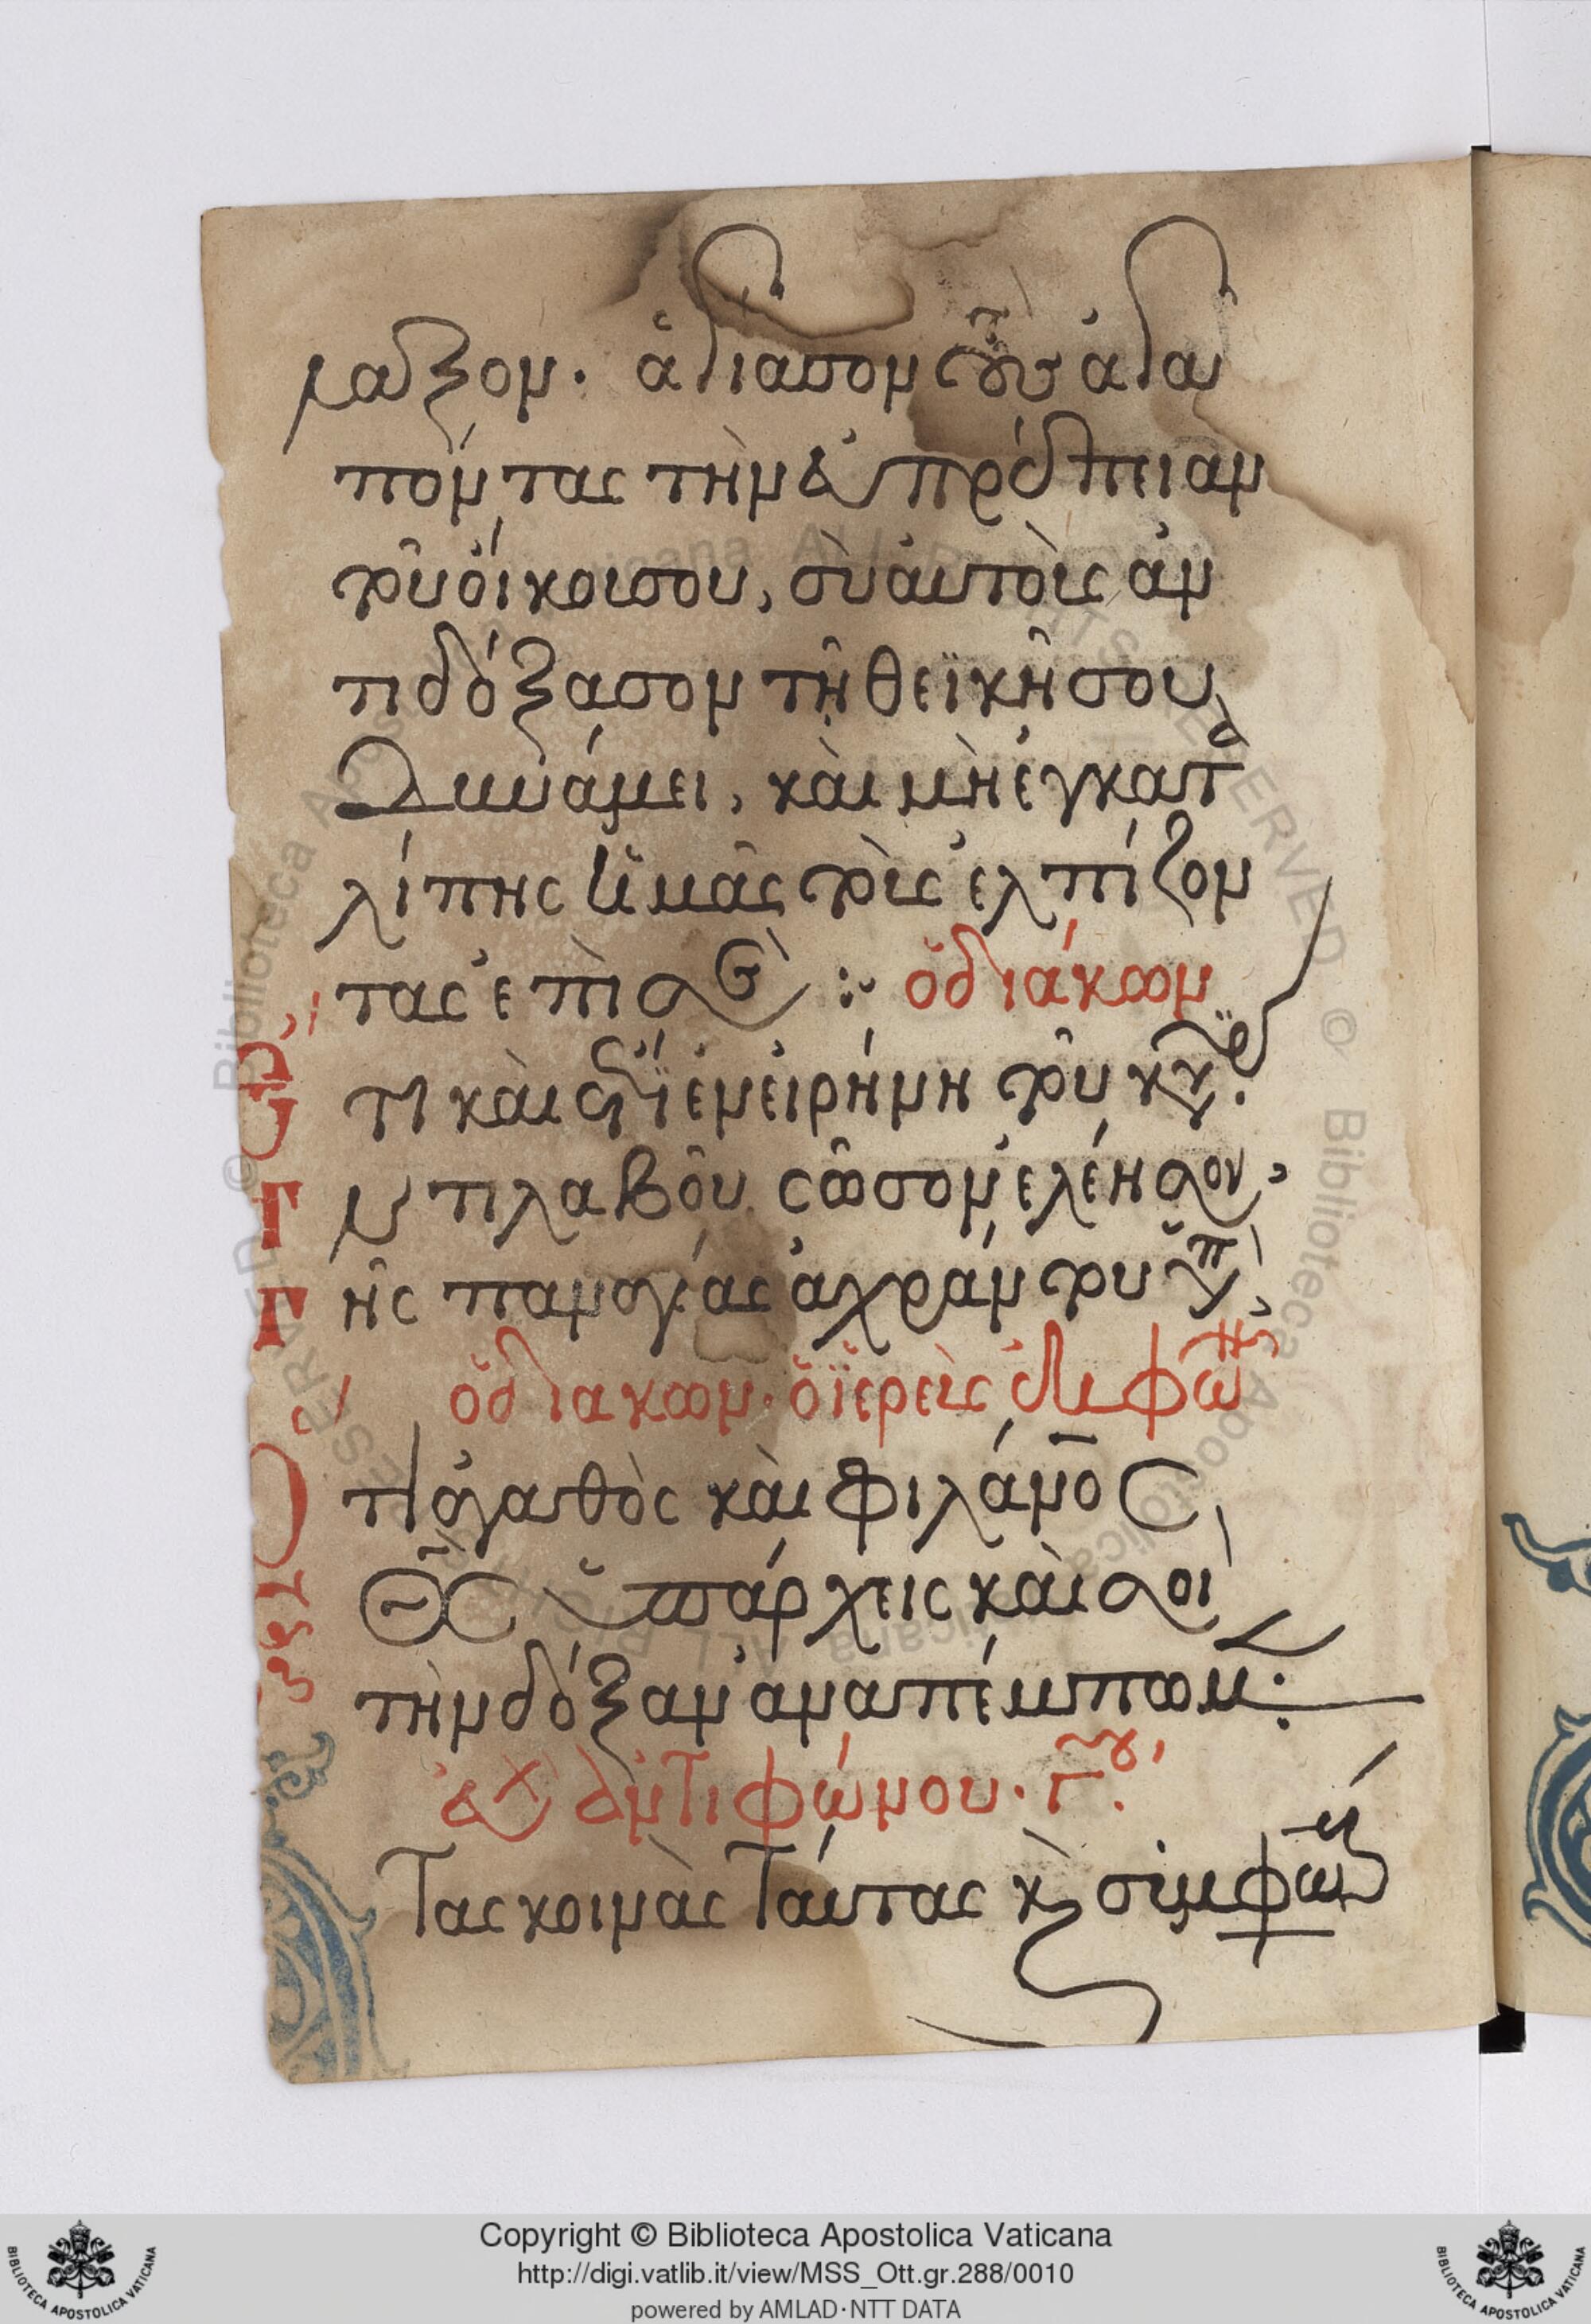 λαξον· ἁγίασον τοὺς ἀγα
πόντας τὴν εὐπρέπειαν
τοῦ οἴκου σου, σὺ αὐτοὺς ἀν
τιδόξασον τῆ θεϊκῆ σου
Δυνάμει, καὶ μὴ ἐγκατ
λίπης ἡμᾶς τοὺς ἐλπίζον
τας ἐπὶ σέ : ὁ διάκων
τι καὶ ἔτι ἐν εἰρήνη τοῦ κυ
ντιλαβοῦ σῶσον ἐλέησον,
ῆς παναγίας ἀχράντου ὑπ
ὁ διακων· ὁ ἱερεὺς ἐκφων
τι ἀγαθὸς καὶ φιλάνος
ΘΣ ὑπάρχεις καὶ σοὶ
τὴν δόξαν ἀναπέμπομεν:
εὐχ ἀντιφώνου· γου
Τας κοινὰς Ταύτας κ συμφώ
Copyright © Biblioteca Apostolica Vaticana
http://digi.vatlib.it/view/MSS_Ott.gr.288/0010
powered by AMLAD·NTT DATA